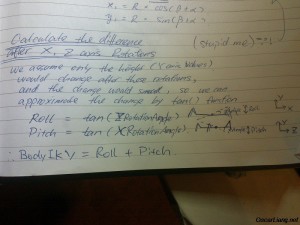 x₁ = R * cos(β+α)
y₁ = R * sin(β+α)
Calculate the difference
After X, Z axis Rotations
(stupid me)
we assume only the height (Y axis when)
would change after these rotations,
and the change would small, so we can
approximate the change by tan() function
Roll = tan(ZRotationAngle)
Pitch = tan(XRotationAngle)
∴ BodyIkY = Roll + Pitch.
CoscarLiang.net